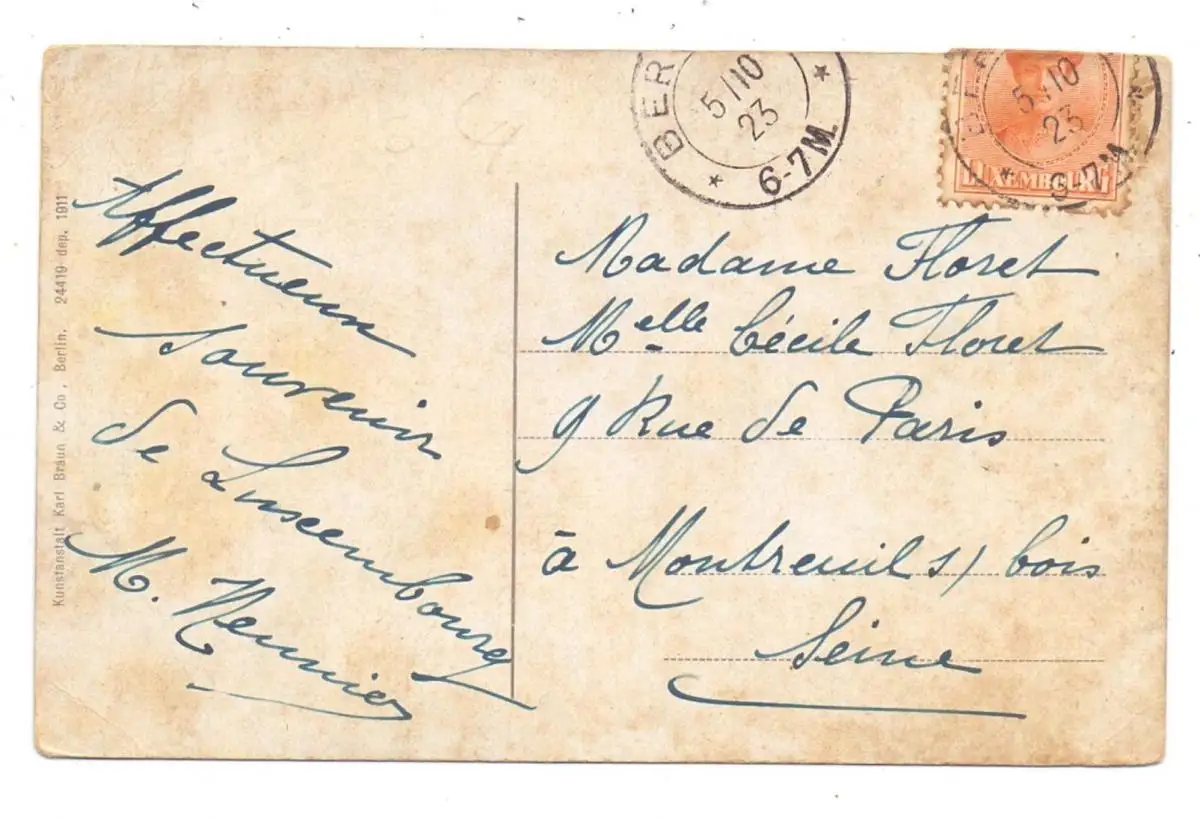 BER
5/10
23
6-7M.
BER
5/10
23
LUXEMBOURG
Kunstanstalt Karl Braun & Co, Berlin. 24419 dep. 1911
Affectueux
souvenir
de Luxembourg
M.
Madame Floret
Melle Cécile Floret
9 Rue de Paris
à Montreuil s/ bois
Seine